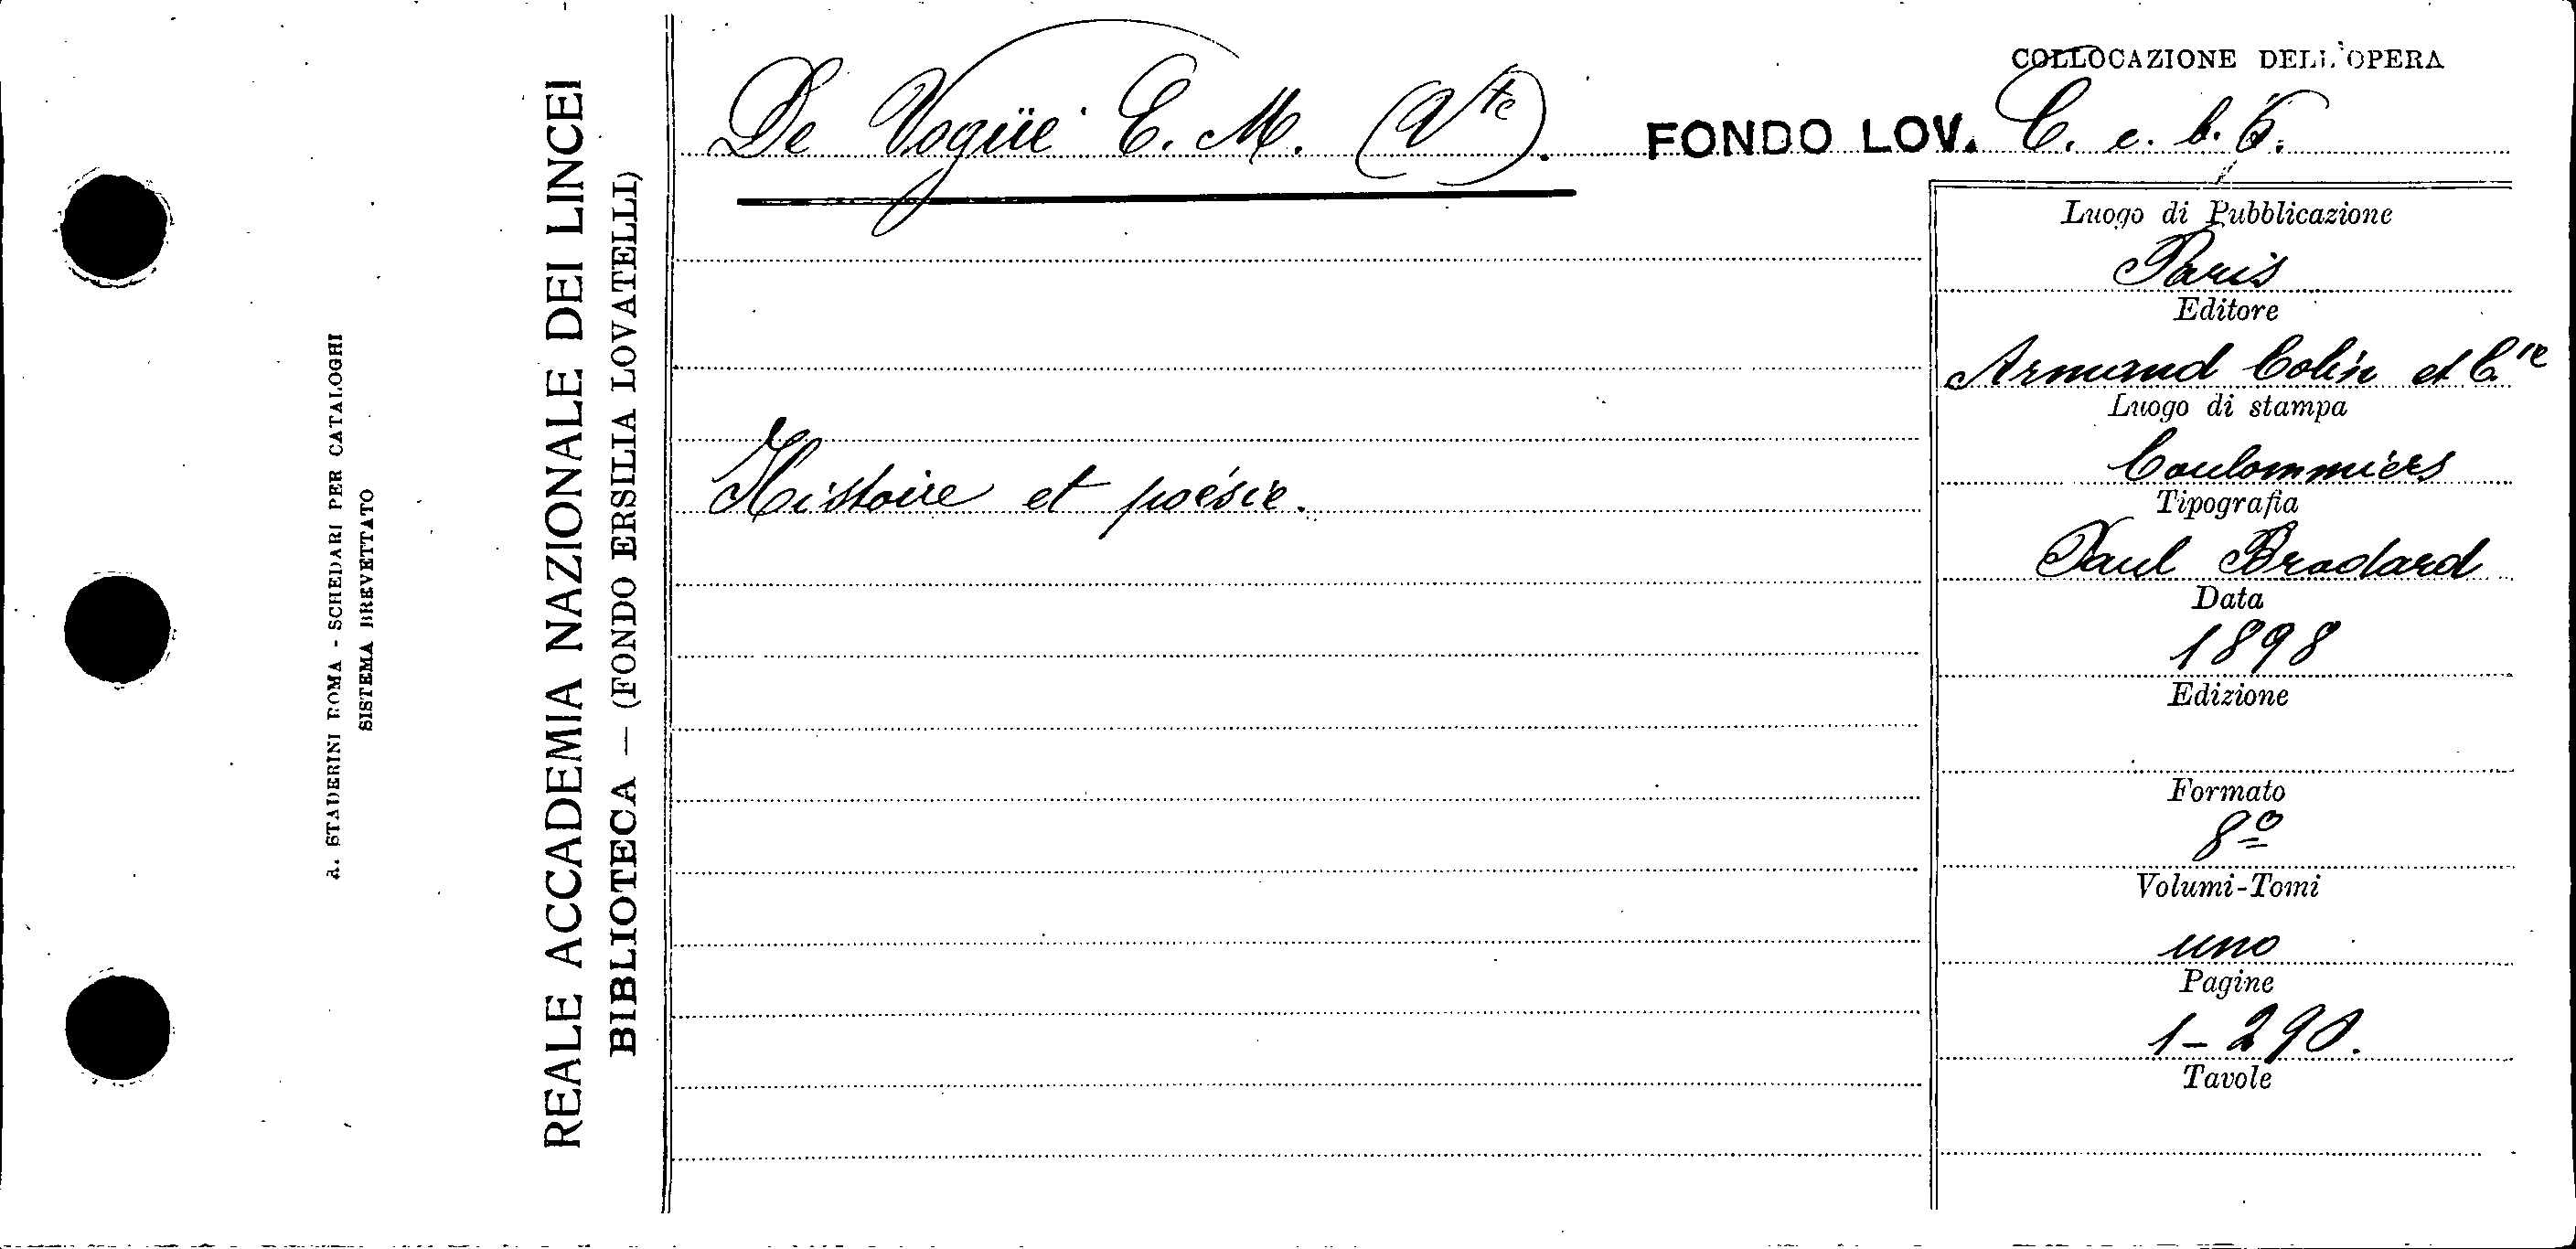 A. STADERINI ROMA - SCHEDARI PER CATALOGHI
SISTEMA BREVETTATO
REALE ACCADEMIA NAZIONALE DEI LINCEI
BIBLIOTECA — (FONDO ERSILIA LOVATELLI)
De Vogüé E. M. (Vte).
Histoire et poésie.
COLLOCAZIONE DELL'OPERA
FONDO LOV. C. c. b. 6.
Luogo di Pubblicazione
Paris
Editore
Armand Colin et C.ie
Luogo di stampa
Coulommiers
Tipografia
Paul Brodard
Data
1898
Edizione
Formato
8º
Volumi-Tomi
uno
Pagine
1-290.
Tavole